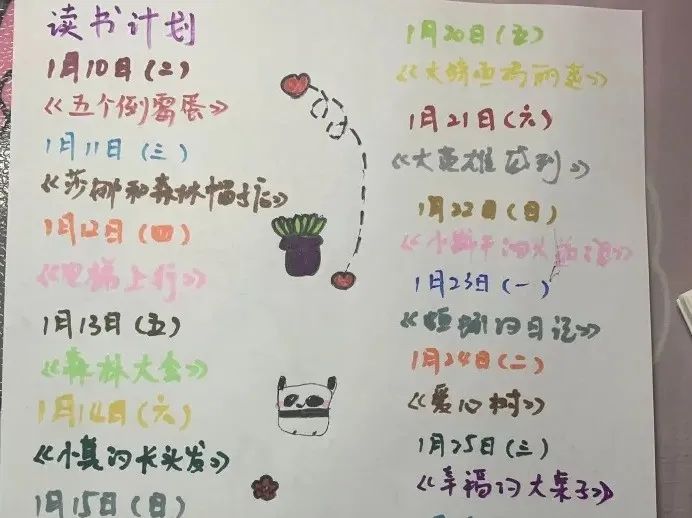 读书计划
1月10日(二)
《五个倒霉蛋》
1月11日(三)
《莎娜和森林帽子店》
1月12日(四)
《电梯上行》
1月13日(五)
《森林大会》
1月14日(六)
《小真的长头发》
1月15日(日)
1月20日(五)
1月21日(六)
《大英雄威利》
1月22日(日)
1月23日(一)
《蚯蚓的日记》
1月24日(二)
《爱心树》
1月25日(三)
《幸福的大桌子》